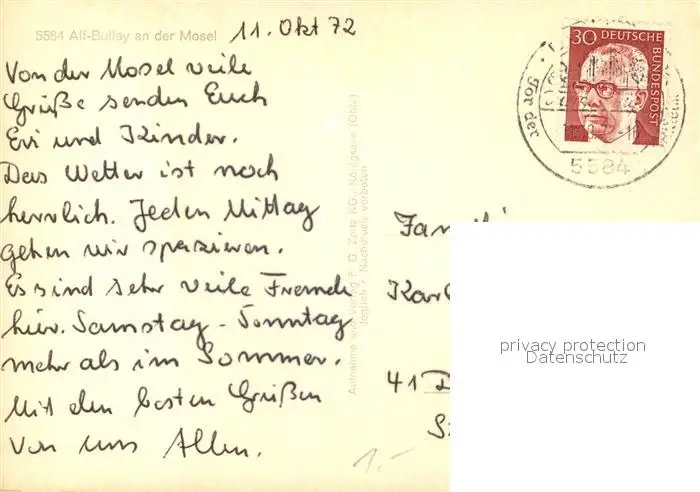 5584 Alf-Bullay an der Mosel
11. Okt 72
Von der Mosel veile
Grüße senden Euch
Evi und Kinder.
Das Wetter ist noch
herrlich. Jeden Mittag
gehen wir spazieren.
Es sind sehr veile Fremde
hier. Samstag - Sonntag
mehr als im Sommer.
Mit den besten Grüßen
von uns Allen.
Aufnahme und Verlag F. G. Zeitz KG., Königssee (Obb.)
Jeglicher Nachdruck verboten
30 DEUTSCHE BUNDESPOST
5584
41
1.-
privacy protection
Datenschutz